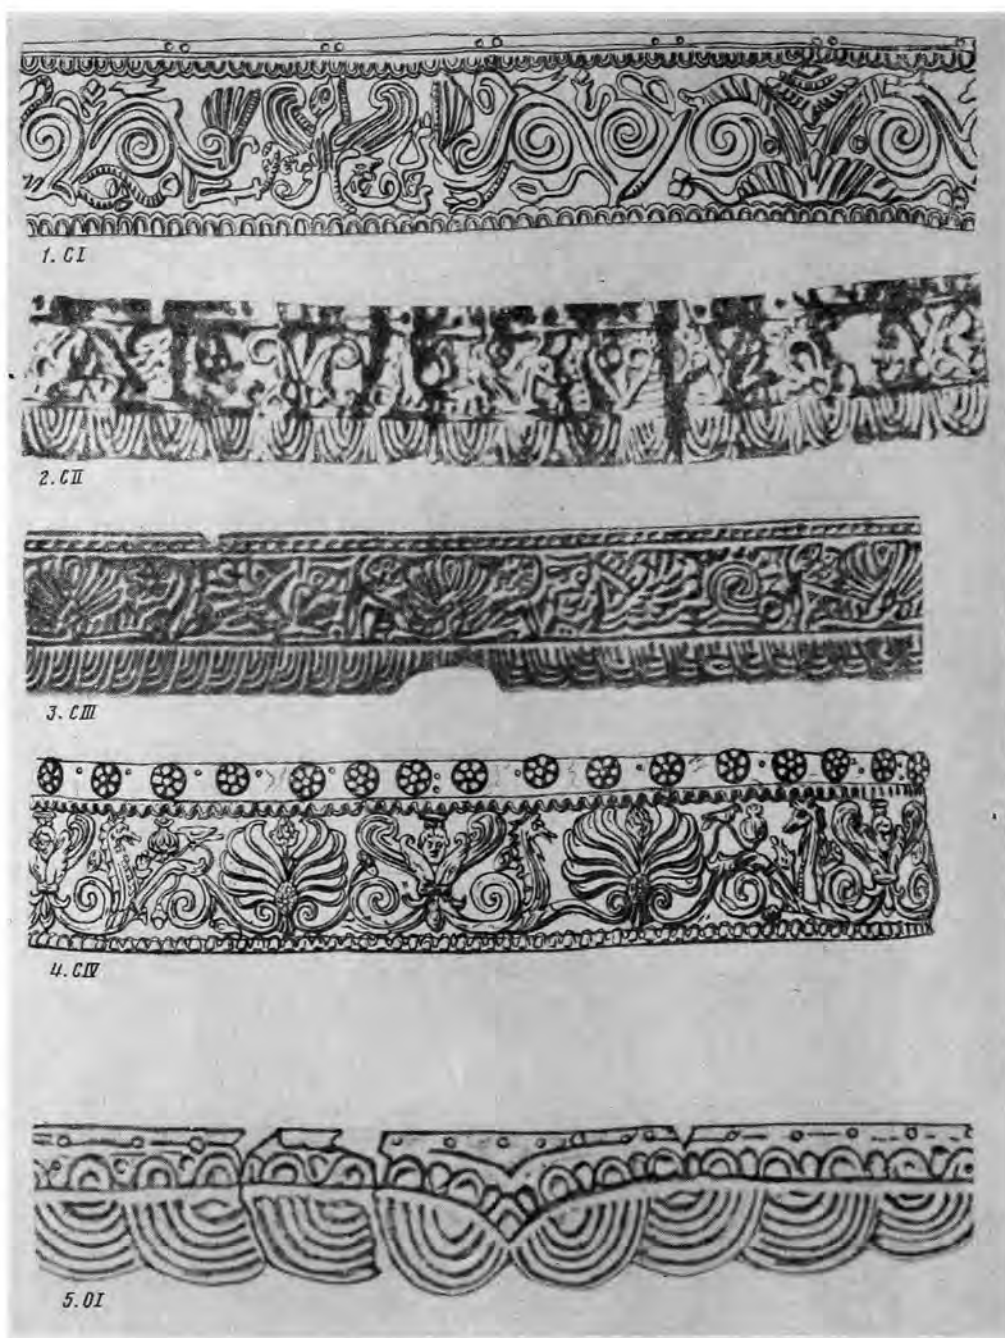 1. CI
2. CII
3. CIII
4. CIV
5. OI